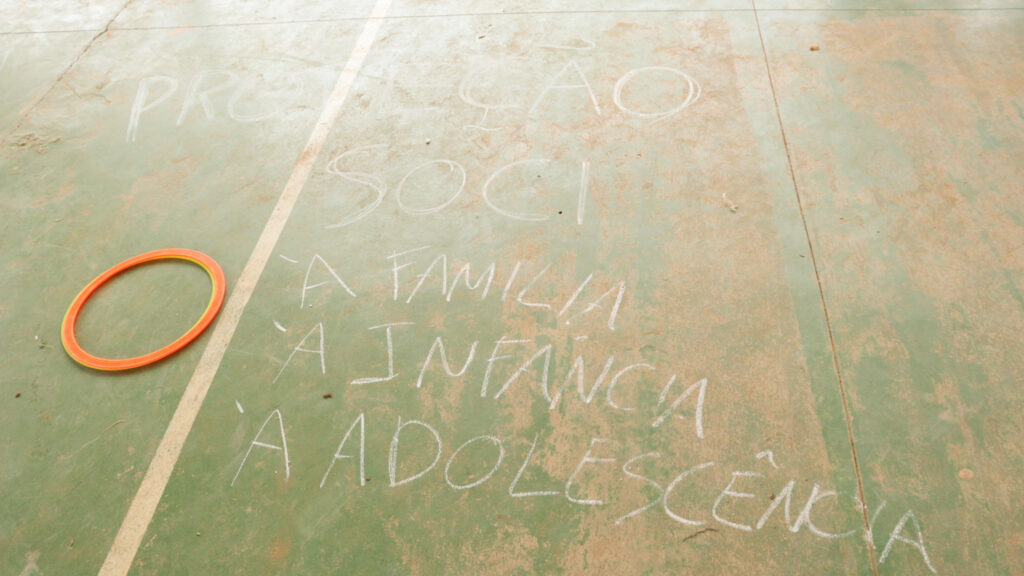 PROTEÇÃO
SOCI
À FAMILIA
À INFÂNCIA
À ADOLESCÊNCIA